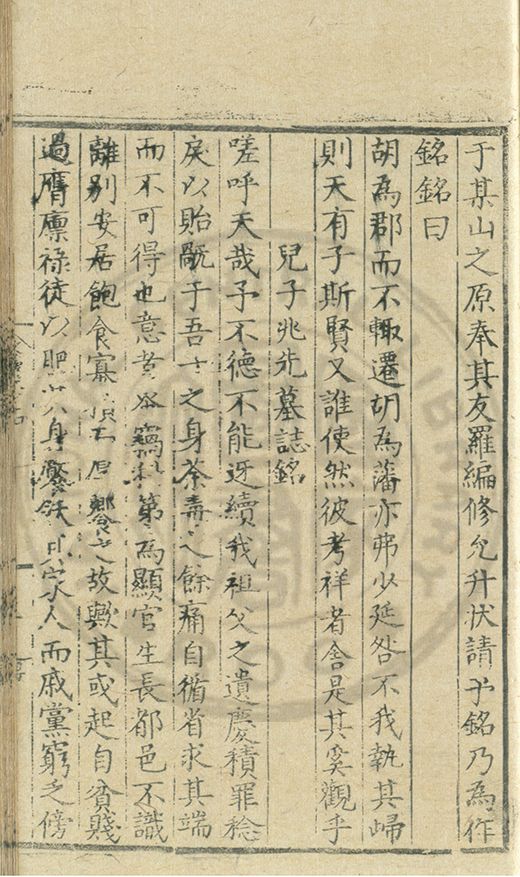 于某山之原奉其友羅編修允升状請予銘乃為作
銘銘曰
胡為郡而不輙遷胡為藩亦弗少延咎不我執其歸
則天有子斯賢又誰使然彼考祥者舍是其奚觀乎
兒子兆先墓誌銘
嗟呼天哉予不德不能迓續我祖父之遺慶積罪稔
戾以貽酷于吾士之身荼毒之餘痛自循省求其端
而不可得也意者忝竊科第為顯官生長都邑不識
離別安居飽食寡而原饗之故歟其或起自貧賤
過膺廪祿徒以肥其身繫鉄人而戚黨窮乏傍